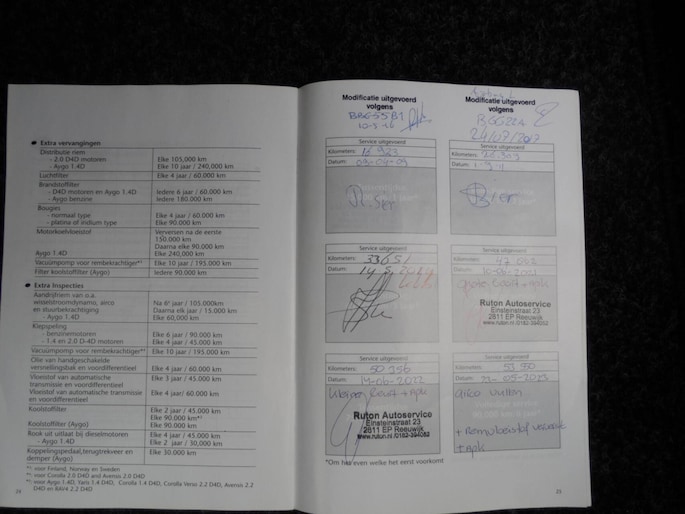 Extra vervangingen
Distributie riem
- 2.0 D4D motoren Elke 105,000 km
- Aygo 1.4D Elke 10 jaar / 240,000 km
Luchtfilter Elke 4 jaar / 60.000 km
Brandstoffilter
- D4D motoren en Aygo 1.4D Iedere 6 jaar / 60.000 km
- Aygo benzine Iedere 180.000 km
Bougies
- normaal type Elke 4 jaar / 60.000 km
- platina of iridium type Elke 90.000 km
Motorkoelvloeistof Verversen na de eerste
150.000 km
Daarna elke 90.000 km
Aygo 1.4D Elke 240,000 km
Vacuümpomp voor rembekrachtiger Elke 10 jaar / 195.000 km
Filter koolstoffilter (Aygo) Iedere 90.000 km
Extra Inspecties
Aandrijfriem van o.a.
wisselstroomdynamo, airco Na 6e jaar / 105.000km
en stuurbekrachtiging Daarna elk jaar / 15.000 km
- Aygo 1.4D Elke 60,000 km
Klepspeling
- benzinemotoren Elke 6 jaar / 90.000 km
- 1.4 en 2.0 D-4D motoren Elke 3 jaar / 45.000 km
Vacuümpomp voor rembekrachtiger Elke 10 jaar / 195.000 km
Olie van handgeschakelde
versnellingsbak en voordifferentieel Elke 4 jaar / 60.000 km
Vloeistof van automatische Elke 3 jaar / 45.000 km
transmissie en voordifferentieel
Vloeistof van automatische Elke 4 jaar/ 60.000 km
transmissie en voordifferentieel
Koolstoffilter Elke 2 jaar / 45.000 km
Elke 90.000 km
Koolstoffilter (Aygo) Elke 90.000 km
Rook uit uitlaat bij dieselmotoren Elke 4 jaar / 45.000 km
- Aygo 1.4D Elke 2 jaar / 30,000 km
Koppelingspedaal,terugtrekveer en Elke 30.000 km
demper (Aygo)
voor Finland, Norway en Sweden
voor Corolla 2.0 D4D and Avensis 2.0 D4D
voor Aygo 1.4D, Yaris 1.4 D4D, Corolla 1.4 D4D, Corolla Verso 2.2 D4D, Avensis 2.2
D4D en RAV4 2.2 D4D
Modificatie uitgevoerd
volgens
Service uitgevoerd
Kilometers: 16 923
Datum: 09-04-09
Service uitgevoerd
Kilometers: 33651
Datum:
Service uitgevoerd
Kilometers: 50 356
Datum: -06-2012
Ruton Autoservice
Einsteinstraat 23
2811 EP Reeuwijk
www.ruton.nl /0182-394052
*Om het even welke het eerst voorkomt
Modificatie uitgevoerd
volgens
24/07/2017
Service uitgevoerd
Kilometers:
Datum:
Service uitgevoerd
Kilometers:
Datum:
+ apk
Ruton Autoservice
Einsteinstraat 23
2811 EP Reeuwijk
www.ruton.nl /0182-394052
Service uitgevoerd
Kilometers:
Datum: -05-2013
+ apk
23